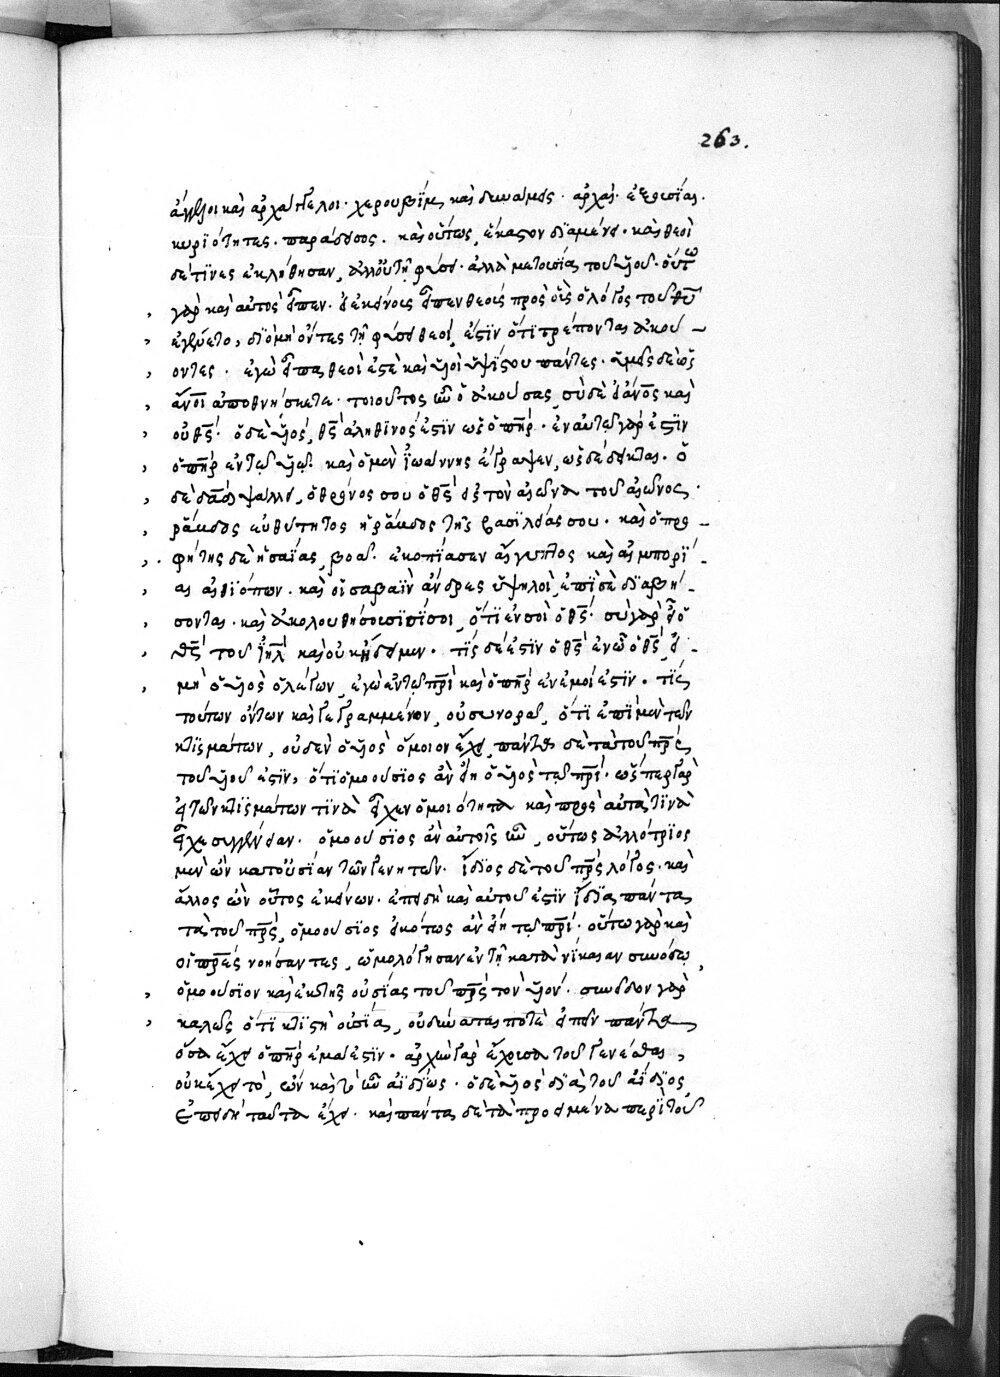 263.
ἄγγελοι καὶ ἀρχάγγελοι· χερουβὶμ, καὶ δυνάμεις· ἀρχαὶ· ἐξουσίαι.
κυριότητες· παράδεισος. καὶ οὕτως, ἕκαστον διαμένει· καὶ θεοὶ
δέ τινες ἐκλήθησαν, ἀλλ' οὐ τῇ φύσει· ἀλλὰ μετουσίᾳ τοῦ υἱοῦ· οὕτω
γὰρ καὶ αὐτὸς εἶπεν· εἰ ἐκείνους εἶπεν θεοὺς πρὸς οὓς ὁ λόγος τοῦ θυ
ἐγένετο, διὸ μὴ ὄντες τῇ φύσει θεοί, ἐστὶν ὅτι τρέπονται ἀκού
οντες· ἐγὼ εἶπα θεοὶ ἐστὲ καὶ υἱοὶ ὑψίστου πάντες· ὑμεῖς δὲ ὡς
ἄνοι ἀποθνήσκετε· τοιοῦτος ἦν ὁ ἀκούσας, σὺ δὲ εἶ ἄνος καὶ
οὐ θς· ὁ δὲ υἱός, θς ἀληθινός ἐστιν ὡς ὁ πηρ· ἐν αὐτῷ γάρ ἐστιν
ὁ πηρ ἐν τῷ υἱῷ· καὶ ὁ μὲν ἰωάννης ἔγραψεν, ὡς δέδεικται· ὁ
δὲ δαδ ψάλλει, ὁ θρόνος σου ὁ θς εἰς τὸν αἰῶνα τοῦ αἰῶνος·
ῥάβδος εὐθύτητος ἡ ῥάβδος τῆς βασιλείας σου· καὶ ὁ προ
φήτης δὲ ἡσαΐας, βοᾷ· ἐκοπίασεν αἴγυπτος καὶ αἱ ἐμπορί
αι αἰθιόπων· καὶ οἱ σαβαῒν ἄνδρες ὑψηλοὶ, ἐπὶ σὲ διαβή
σονται· καὶ ἀκολουθήσουσί σοι, ὅτι ἐν σοὶ ὁ θς· σὺ γὰρ εἶ ὁ
θς τοῦ ιηλ καὶ οὐκ ᾔδειμεν· τίς δέ ἐστιν ὁ θς ἐν ᾧ ὁ θς, εἰ
μὴ ὁ υἱὸς ὁ λέγων, ἐγὼ ἐν τῷ πρι καὶ ὁ πηρ ἐν ἐμοί ἐστιν· τίς
τούτων ὄντων καὶ γεγραμμένων, οὐ συνορᾷ, ὅτι ἐπὶ μὲν τῶν
κτισμάτων, οὐδὲν ὁ υἱὸς ὅμοιον ἔχει, πάντα δὲ τὰ τοῦ πρς
τοῦ υἱοῦ ἐστιν, ὅτι ὁμοούσιος ἂν εἴη ὁ υἱὸς τῷ πρι· ὥσπερ γὰρ
εἰ τῶν κτισμάτων τινὰ εἶχεν ὁμοιότητα καὶ πρὸς αὐτὰ τινὰ
εἶχε συγγένειαν· ὁμοούσιος ἂν αὐτοῖς ἦν, οὕτως ἀλλότριος
μὲν ὢν κατ' οὐσίαν τῶν γενητῶν· ἴδιος δὲ τοῦ πρς λόγος· καὶ
ἄλλος ὢν οὗτος ἐκείνων· ἐπειδὴ καὶ αὐτοῦ ἐστιν ἴδια πάντα
τὰ τοῦ πρς, ὁμοούσιος εἰκότως ἂν εἴη τῷ πρι· οὕτω γὰρ καὶ
οἱ πρες νοήσαντες, ὡμολόγησαν ἐν τῇ κατὰ νίκαιαν συνόδῳ,
ὁμοούσιον καὶ ἐκ τῆς οὐσίας τοῦ πρς τὸν υἱόν· συνεῖδον γὰρ
καλῶς ὅτι κτιστὴ οὐσία, οὐ δύναταί ποτε εἰπεῖν πάντα
ὅσα ἔχει ὁ πηρ ἐμά ἐστιν· ἀρχὴν γὰρ ἔχουσα τοῦ γενέσθαι,
οὐκ ἔχει τὸ, ὢν καὶ ἦν ἀϊδίως· ὁ δὲ υἱὸς διὰ τοῦ ἀΐδιος,
ἐπειδὴ ταῦτα ἔχει· καὶ πάντα δὲ τὰ προειρημένα περὶ τοῦ